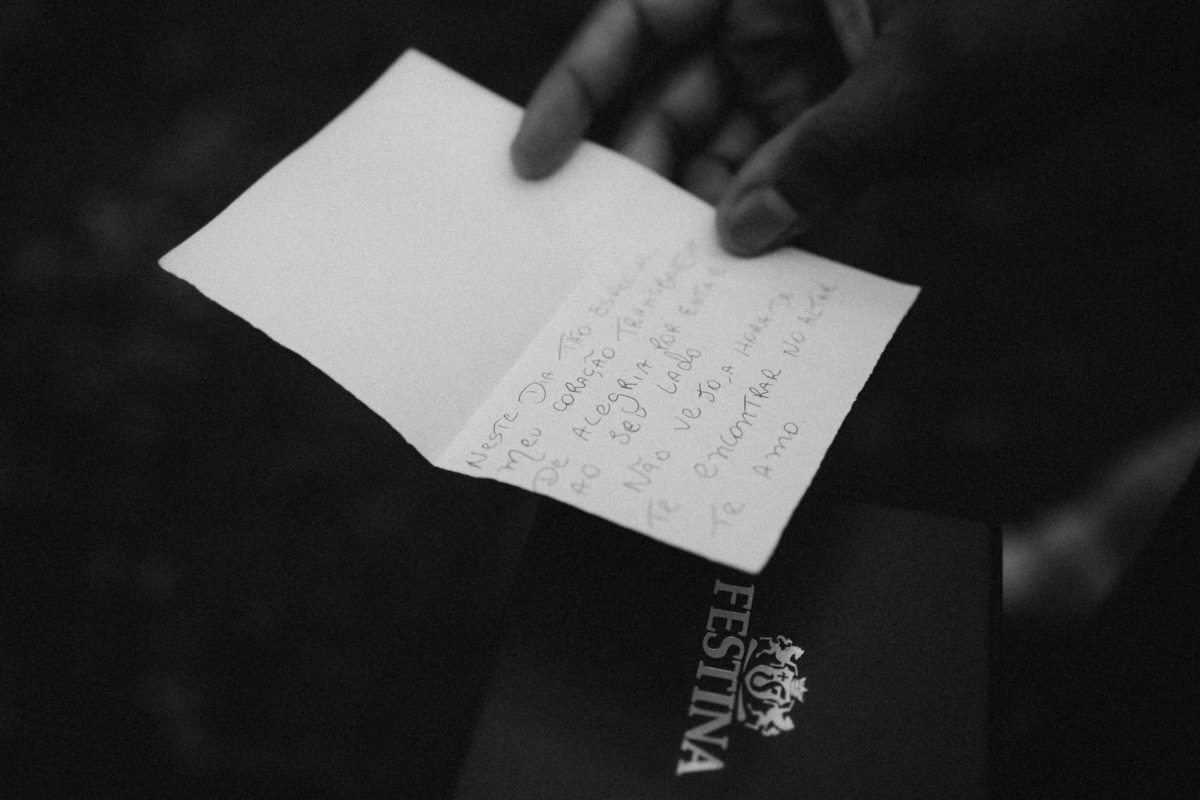 NESTE DIA TÃO ESPECIAL
MEU CORAÇÃO TRANSBORDA
DE ALEGRIA POR ESTAR
AO SEU LADO
NÃO VEJO A HORA DE
TE ENCONTRAR NO ALTAR
TE AMO.
FESTINA